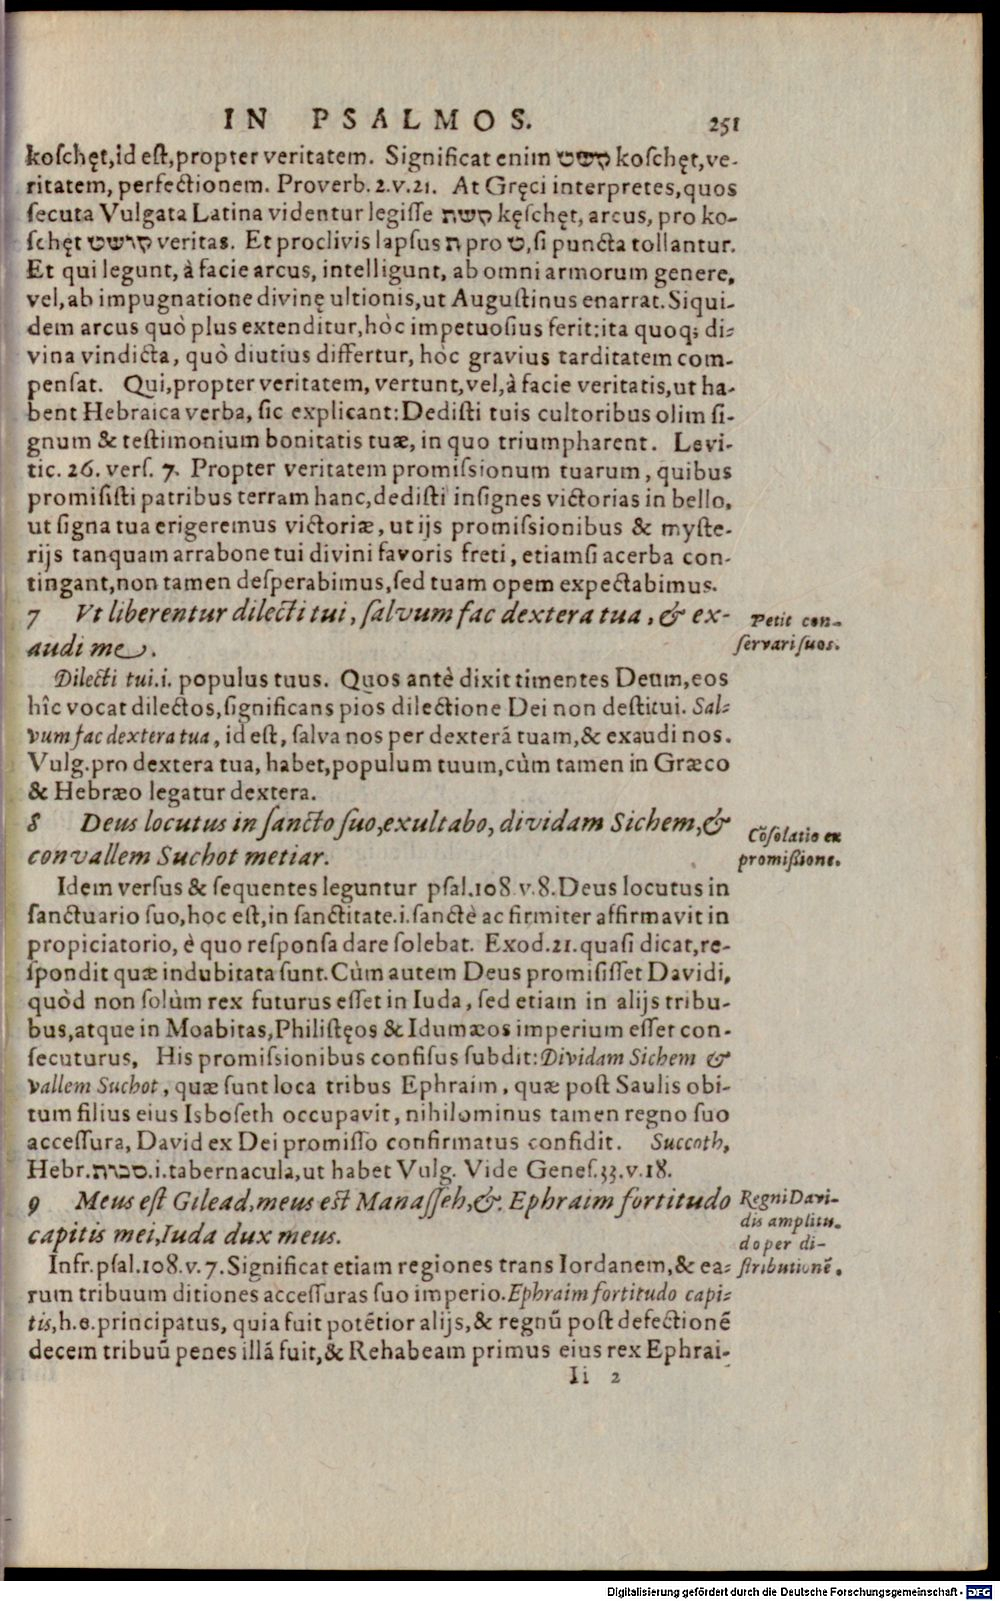 IN PSALMOS. 251
koſchęt, id eſt, propter veritatem. Significat enim קשט koſchęt, ve-
ritatem, perfectionem. Proverb. 2. v. 21. At Gręci interpretes, quos
ſecuta Vulgata Latina videntur legiſſe קשת kęſchęt, arcus, pro ko-
ſchęt קושט veritas. Et proclivis lapſus ת pro ט, ſi puncta tollantur.
Et qui legunt, à facie arcus, intelligunt, ab omni armorum genere,
vel, ab impugnatione divinę ultionis, ut Auguſtinus enarrat. Siqui-
dem arcus quò plus extenditur, hòc impetuoſius ferit: ita quoq; di-
vina vindicta, quò diutius differtur, hòc gravius tarditatem com-
penſat. Qui, propter veritatem, vertunt, vel, à facie veritatis, ut ha-
bent Hebraica verba, ſic explicant: Dediſti tuis cultoribus olim ſi-
gnum & teſtimonium bonitatis tuæ, in quo triumpharent. Levi-
tic. 26. verſ. 7. Propter veritatem promiſsionum tuarum, quibus
promiſiſti patribus terram hanc, dediſti inſignes victorias in bello,
ut ſigna tua erigeremus victoriæ, ut ijs promiſsionibus & myſte-
rijs tanquam arrabone tui divini favoris freti, etiamſi acerba con-
tingant, non tamen deſperabimus, ſed tuam opem expectabimus.
7 Vt liberentur dilecti tui, ſalvum fac dextera tua, & ex-
audi me.
Petit con-
ſervari ſuos.
Dilecti tui. i. populus tuus. Quos antè dixit timentes Deum, eos
hîc vocat dilectos, ſignificans pios dilectione Dei non deſtitui. Sal-
vum fac dextera tua, id eſt, ſalva nos per dexterã tuam, & exaudi nos.
Vulg. pro dextera tua, habet, populum tuum, cùm tamen in Græco
& Hebræo legatur dextera.
8 Deus locutus in ſancto ſuo, exultabo, dividam Sichem, &
convallem Suchot metiar.
Cõſolatio ex
promiſsione.
Idem verſus & ſequentes leguntur pſal. 108. v. 8. Deus locutus in
ſanctuario ſuo, hoc eſt, in ſanctitate. i. ſanctè ac firmiter affirmavit in
propiciatorio, è quo reſponſa dare ſolebat. Exod. 21. quaſi dicat, re-
ſpondit quæ indubitata ſunt. Cùm autem Deus promiſiſſet Davidi,
quòd non ſolùm rex futurus eſſet in Iuda, ſed etiam in alijs tribu-
bus, atque in Moabitas, Philiſtęos & Idumæos imperium eſſet con-
ſecuturus, His promiſsionibus confiſus ſubdit: Dividam Sichem &
vallem Suchot, quæ ſunt loca tribus Ephraim, quæ poſt Saulis obi-
tum filius eius Isboſeth occupavit, nihilominus tamen regno ſuo
acceſſura, David ex Dei promiſſo confirmatus confidit. Succoth,
Hebr. סכות. i. tabernacula, ut habet Vulg. Vide Geneſ. 33. v. 18.
9 Meus eſt Gilead, meus eſt Manaſſeh, &. Ephraim fortitudo
capitis mei, Iuda dux meus.
Regni Davi-
dis amplitu-
do per di-
ſtributionẽ.
Infr. pſal. 108. v. 7. Significat etiam regiones trans Iordanem, & ea-
rum tribuum ditiones acceſſuras ſuo imperio. Ephraim fortitudo capi-
tis, h. e. principatus, quia fuit potẽtior alijs, & regnũ poſt defectionẽ
decem tribuũ penes illã fuit, & Rehabeam primus eius rex Ephrai-
Ii 2
Digitalisierung gefördert durch die Deutsche Forschungsgemeinschaft - DFG